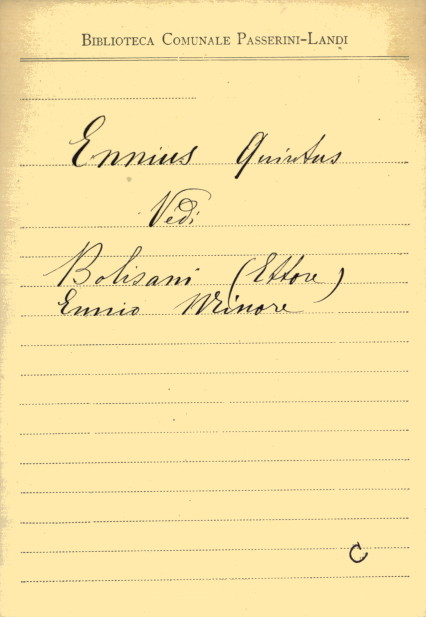 BIBLIOTECA COMUNALE PASSERINI-LANDI
Ennius Quintus
Vedi
Bolisani (Ettore)
Ennio Minore
C